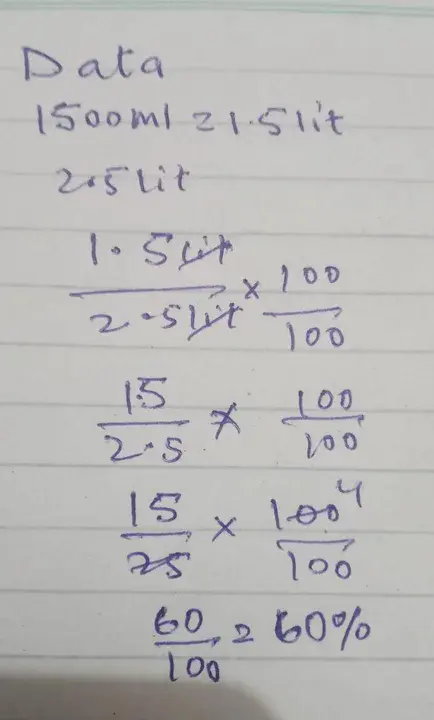 Data
1500ml = 1.5lit
2.5lit
1.5lit/2.5lit × 100/100
1.5/2.5 × 100/100
15/25 × 100 4/100
60/100 = 60%